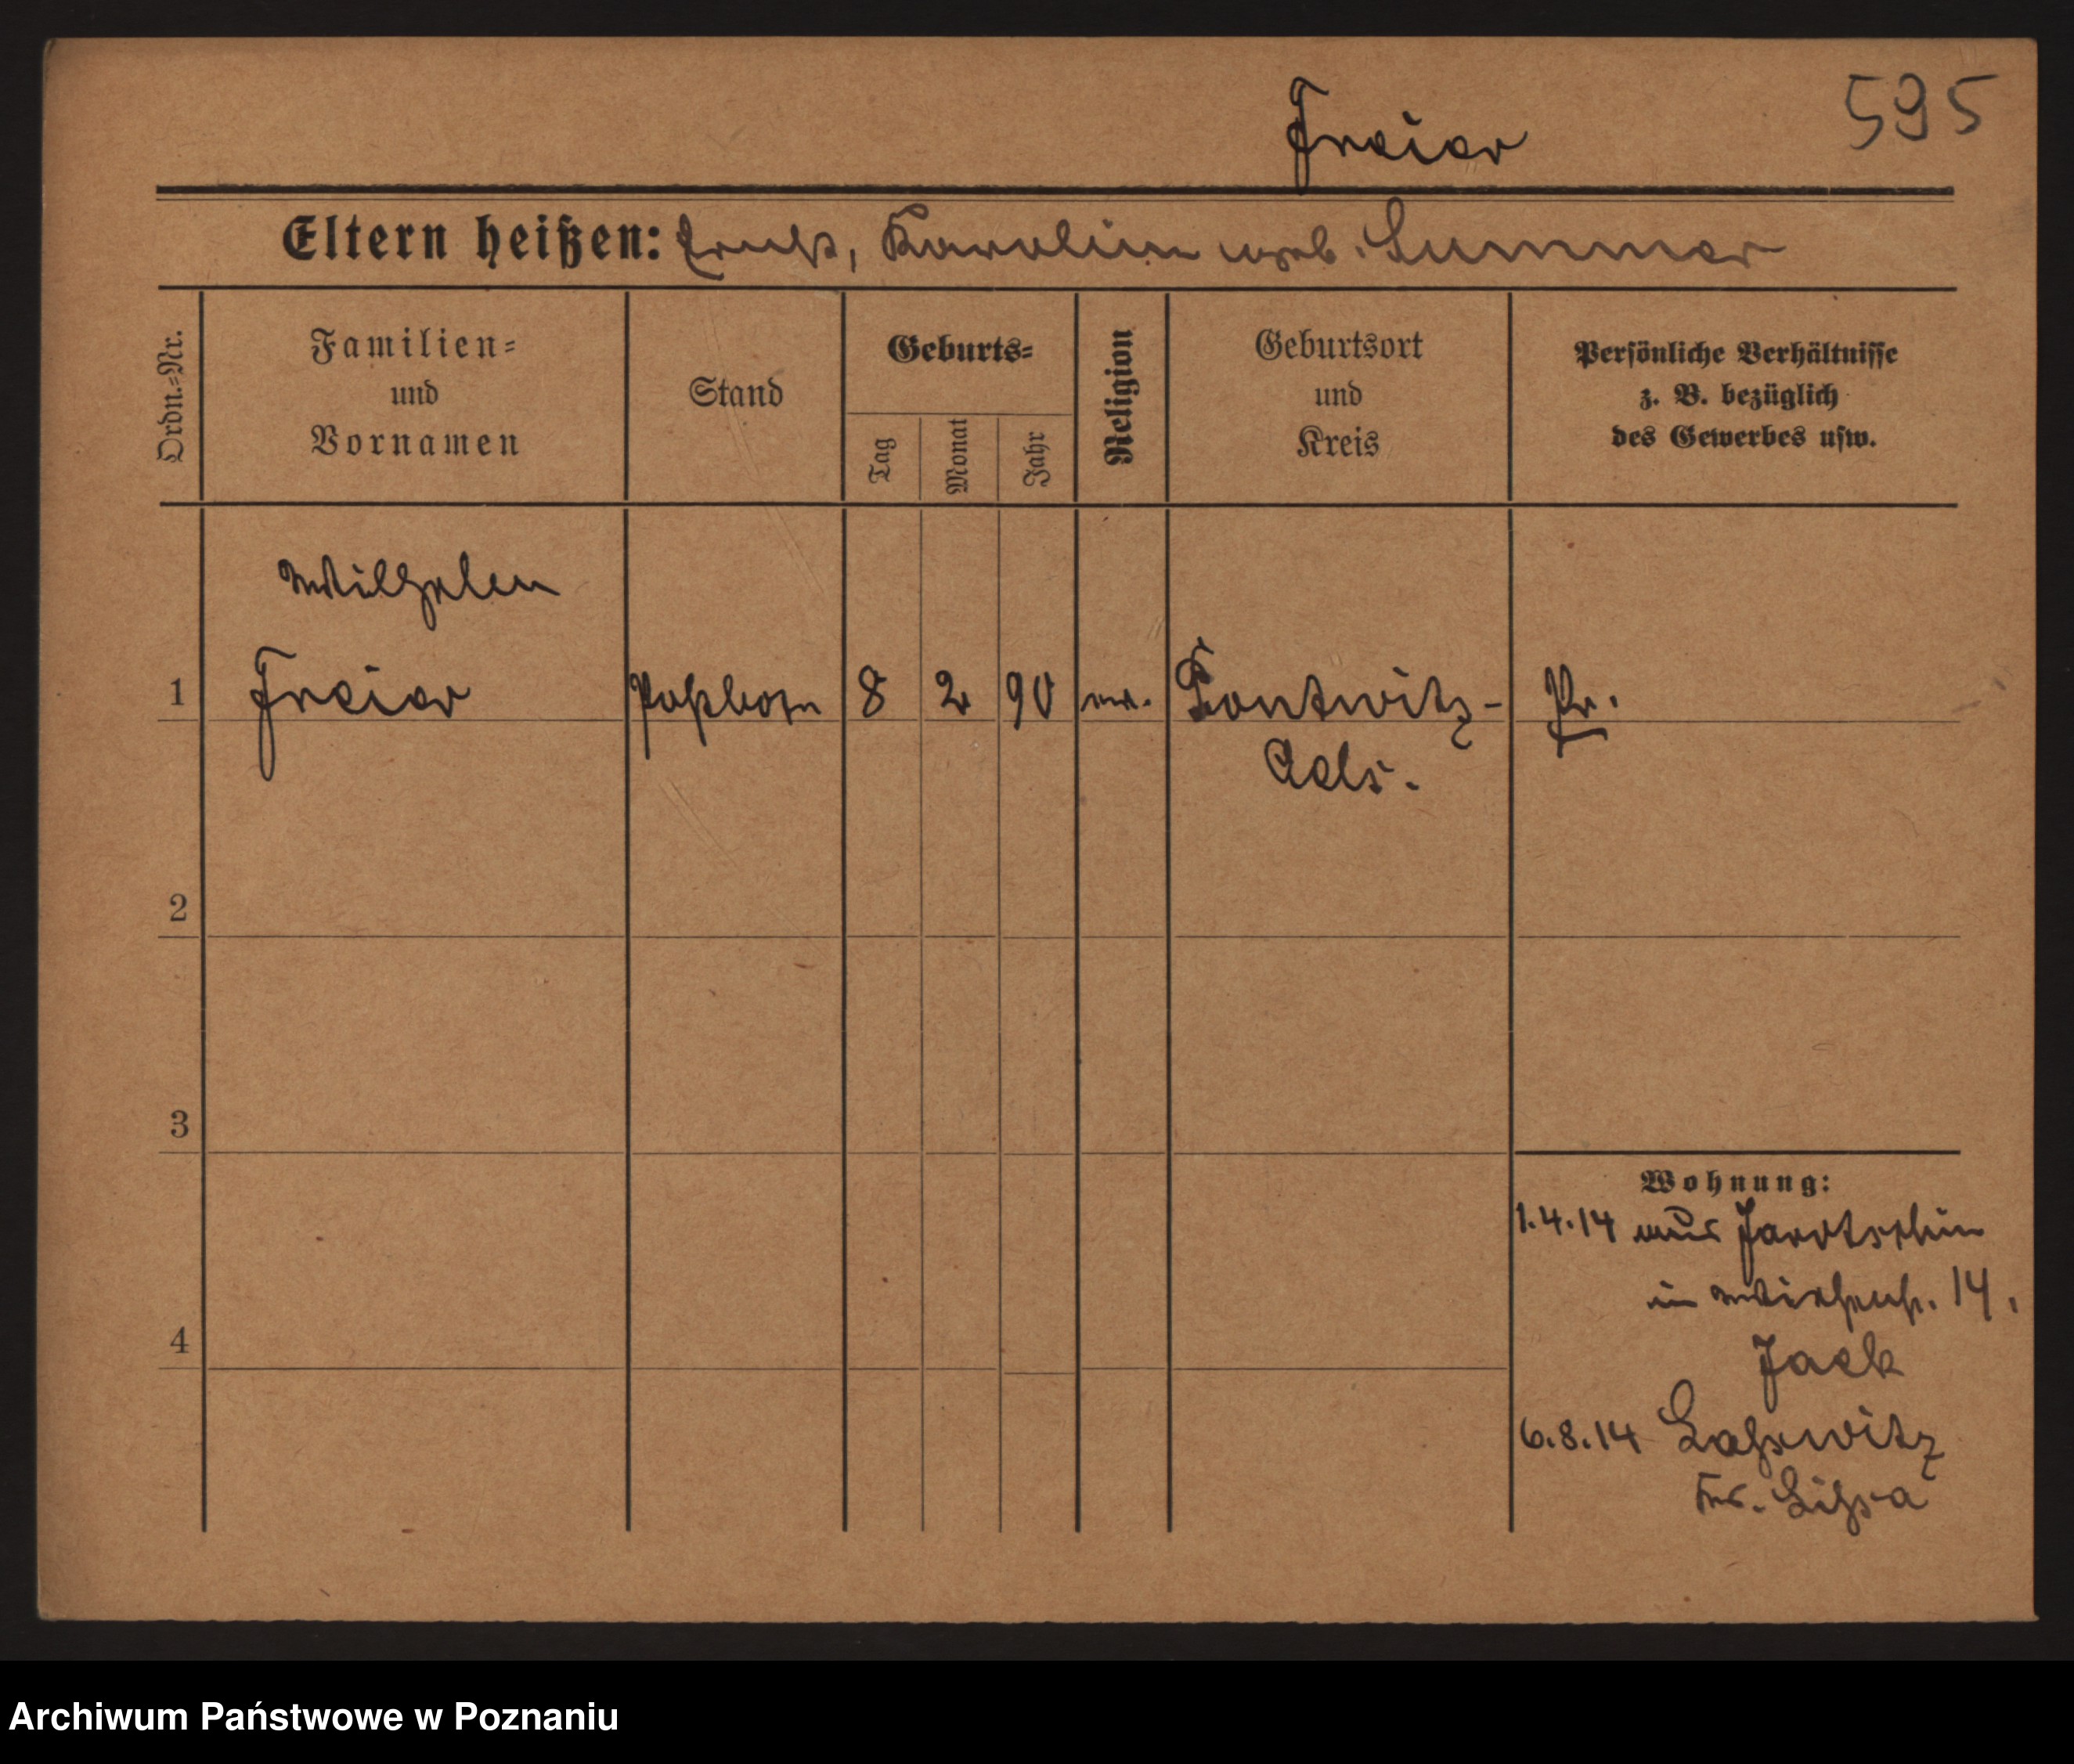 Freier
595
Eltern heißen: Ernst, Karolin geb. Summer
Ordn.=Nr.
Familien=
und
Vornamen
Stand
Geburts=
Tag
Monat
Jahr
Religion
Geburtsort
und
Kreis
Persönliche Verhältnisse
z. B. bezüglich
des Gewerbes usw.
Wilhelm
1 Freier Postbote 8 2 90 ev. Pontwitz-
Oels.
Pr.
2
3
Wohnung:
1.4.14 aus Jarotschin
in 14.
4
Jack
6.8.14 Laßwitz
Krs. Lissa
Archiwum Państwowe w Poznaniu